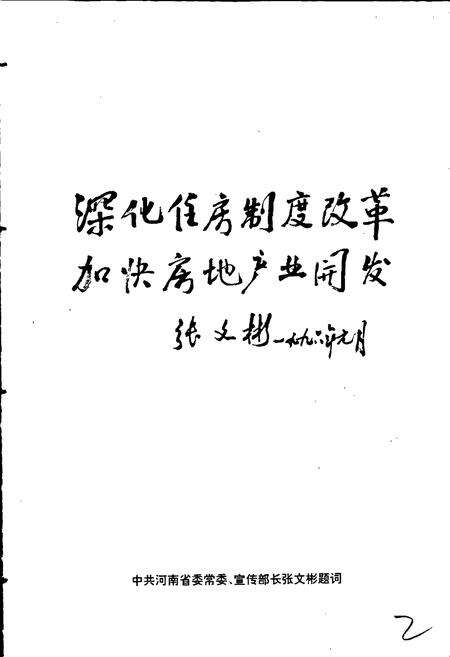 深化住房制度改革
加快房地产业开发
张文彬一九九六年元月
中共河南省委常委、宣传部长张文彬题词
2